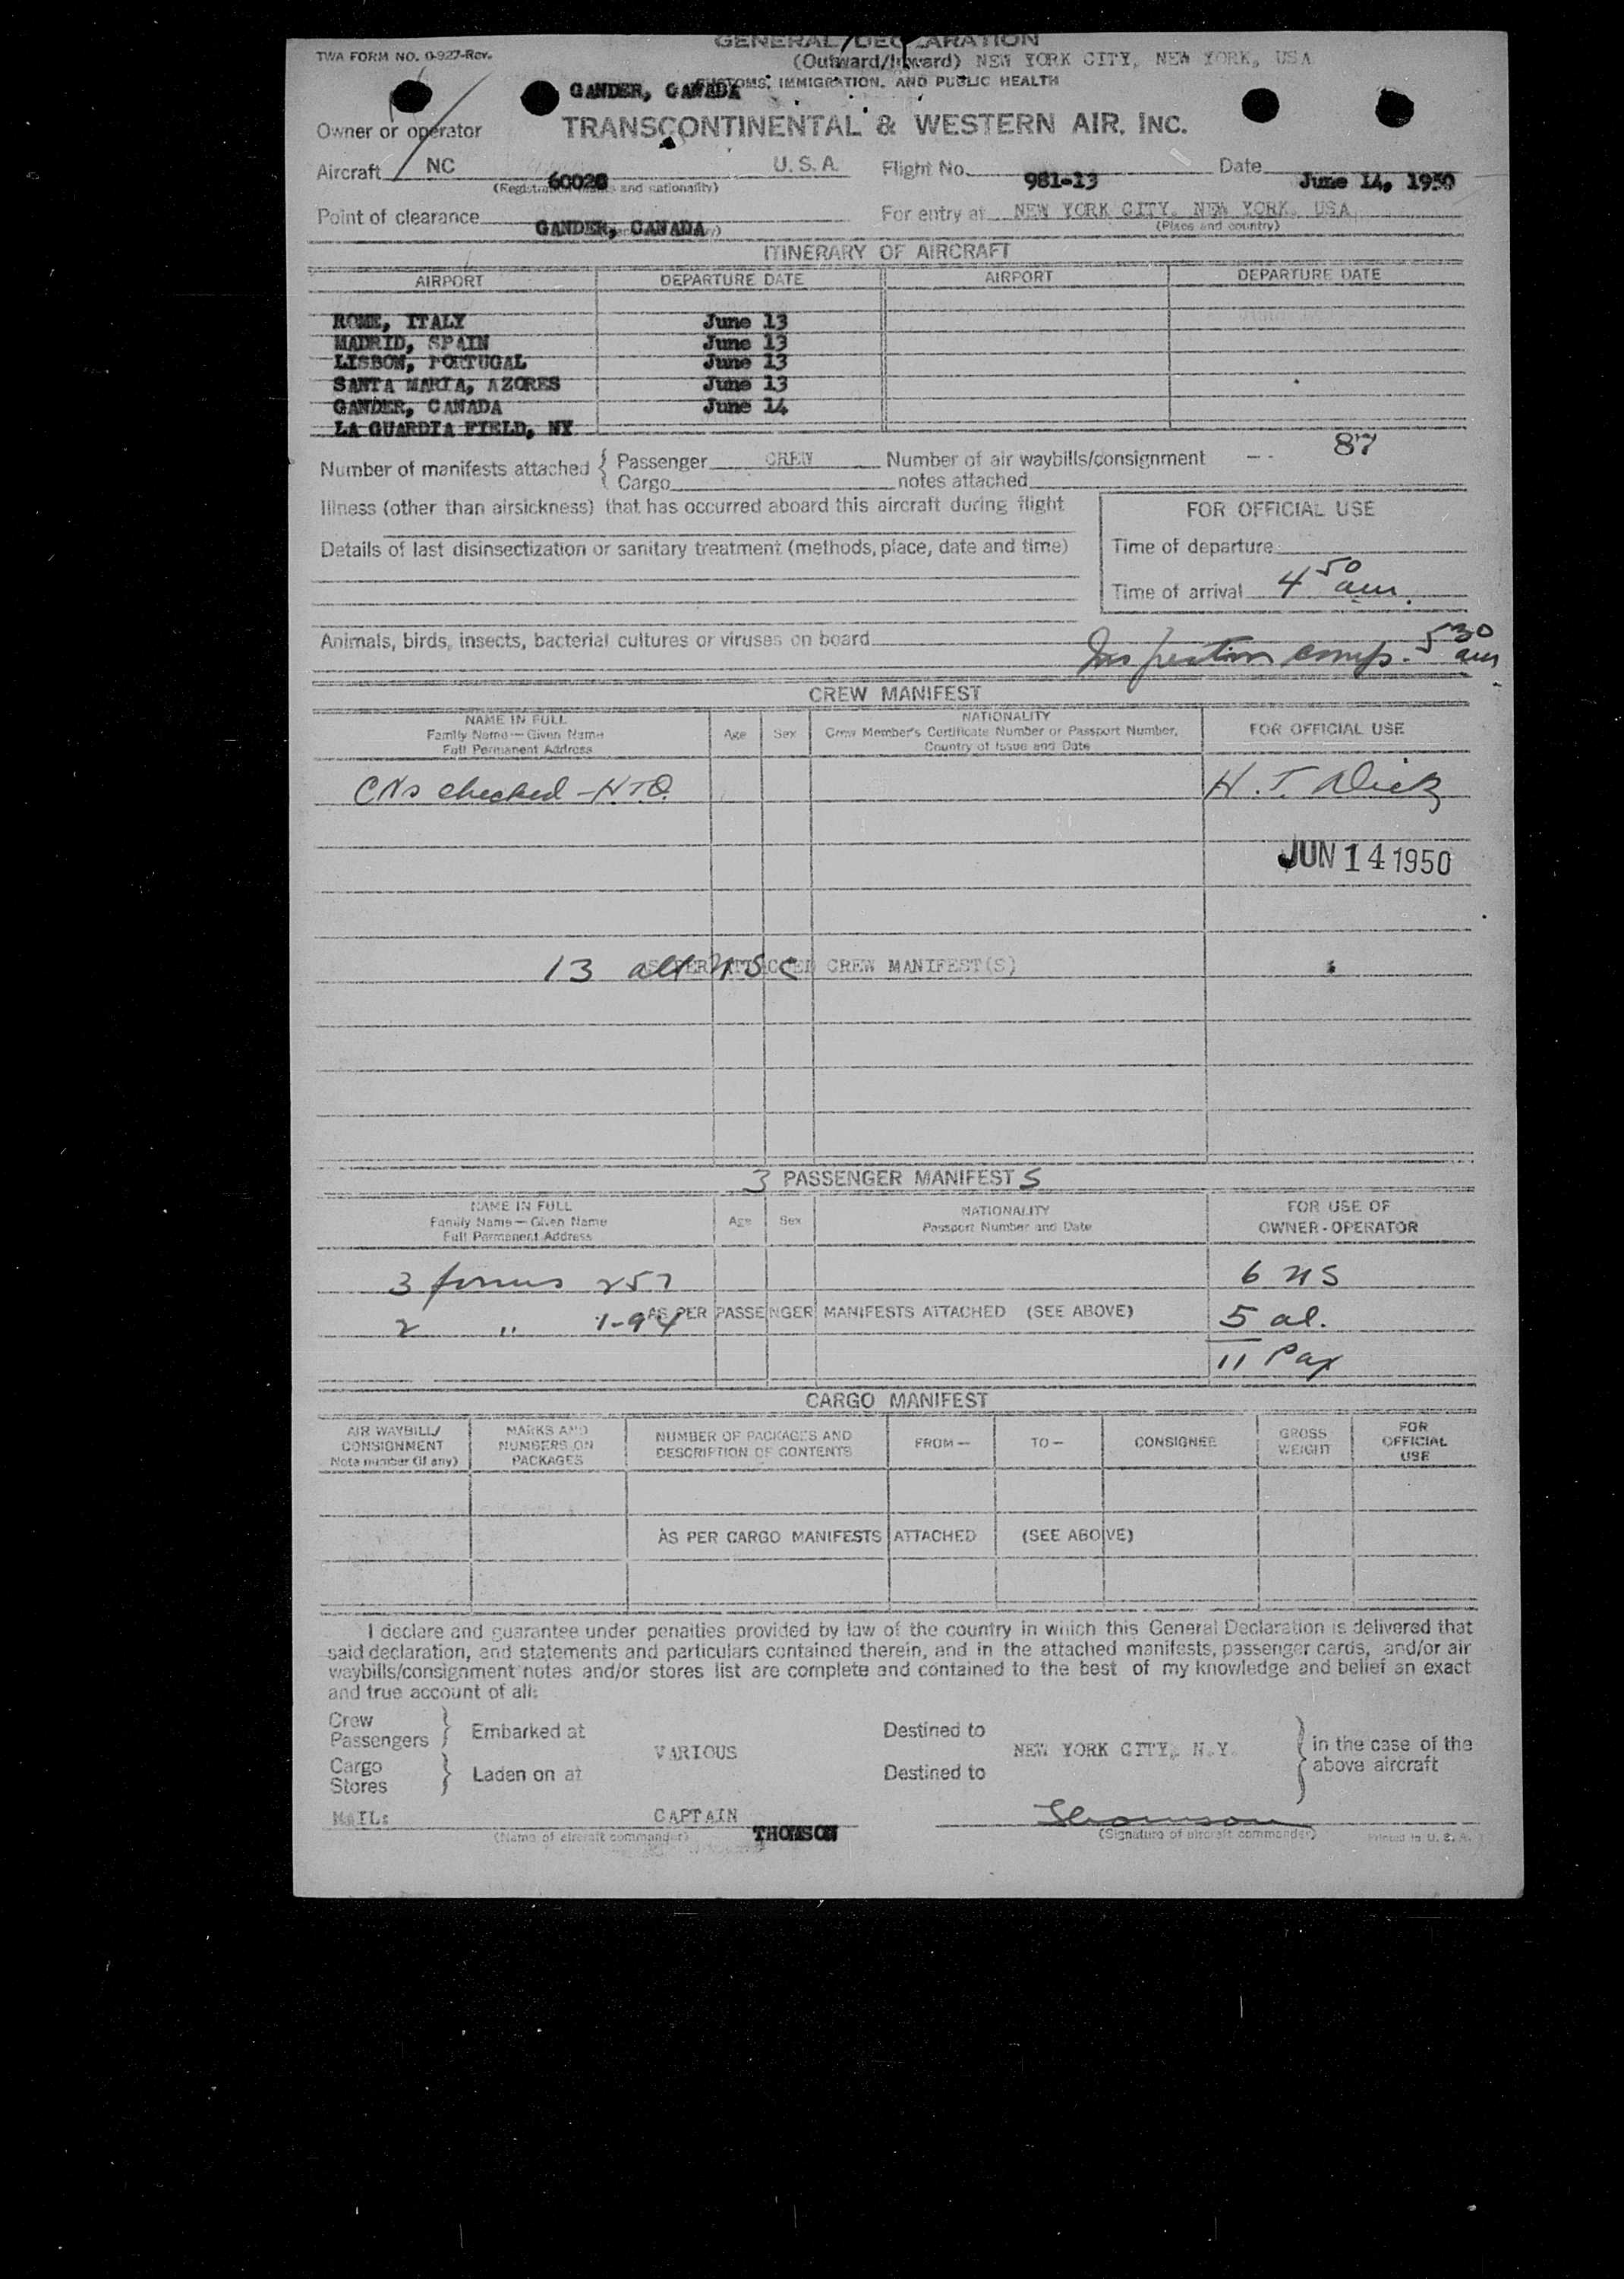 TWA FORM NO. 0-927-Rev.
GENERAL DECLARATION
(Outward/Inward) NEW YORK CITY, NEW YORK, USA
CUSTOMS, IMMIGRATION, AND PUBLIC HEALTH
GANDER, CANADA
Owner or operator TRANSCONTINENTAL & WESTERN AIR, INC.
Aircraft NC 60026 U.S.A. Flight No. 981-13 Date June 14, 1950
(Registration marks and nationality)
Point of clearance GANDER, CANADA For entry at NEW YORK CITY, NEW YORK, USA
(Place and country)
ITINERARY OF AIRCRAFT
AIRPORT DEPARTURE DATE AIRPORT DEPARTURE DATE
ROME, ITALY June 13
MADRID, SPAIN June 13
LISBON, PORTUGAL June 13
SANTA MARIA, AZORES June 13
GANDER, CANADA June 14
LA GUARDIA FIELD, NY
87
Number of manifests attached { Passenger CREW Number of air waybills/consignment --
Cargo notes attached
Illness (other than airsickness) that has occurred aboard this aircraft during flight
FOR OFFICIAL USE
Details of last disinsectization or sanitary treatment (methods, place, date and time)
Time of departure
Time of arrival 4 50 am.
Animals, birds, insects, bacterial cultures or viruses on board
Inspection comp. 5 30 am
CREW MANIFEST
NAME IN FULL
Family Name—Given Name
Full Permanent Address
Age Sex
NATIONALITY
Crew Member's Certificate Number or Passport Number,
Country of Issue and Date
FOR OFFICIAL USE
CNs checked - H.T.D. H. T. Dick
JUN 14 1950
13 all USC AS PER ATTACHED CREW MANIFEST(S)
3 PASSENGER MANIFEST S
NAME IN FULL
Family Name—Given Name
Full Permanent Address
Age Sex
NATIONALITY
Passport Number and Date
FOR USE OF
OWNER-OPERATOR
3 forms 257 6 US
2 " I-94 AS PER PASSENGER MANIFESTS ATTACHED (SEE ABOVE) 5 al.
11 Pax
CARGO MANIFEST
AIR WAYBILL/
CONSIGNMENT
Note number (if any)
MARKS AND
NUMBERS ON
PACKAGES
NUMBER OF PACKAGES AND
DESCRIPTION OF CONTENTS
FROM—
TO—
CONSIGNEE
GROSS
WEIGHT
FOR
OFFICIAL
USE
AS PER CARGO MANIFESTS ATTACHED (SEE ABOVE)
I declare and guarantee under penalties provided by law of the country in which this General Declaration is delivered that
said declaration, and statements and particulars contained therein, and in the attached manifests, passenger cards, and/or air
waybills/consignment notes and/or stores list are complete and contained to the best of my knowledge and belief an exact
and true account of all:
Crew
Passengers } Embarked at VARIOUS Destined to NEW YORK CITY, N.Y. } in the case of the
above aircraft
Cargo
Stores } Laden on at Destined to
MAIL: CAPTAIN THOMSON Thomson
(Name of aircraft commander) (Signature of aircraft commander) Printed in U. S. A.